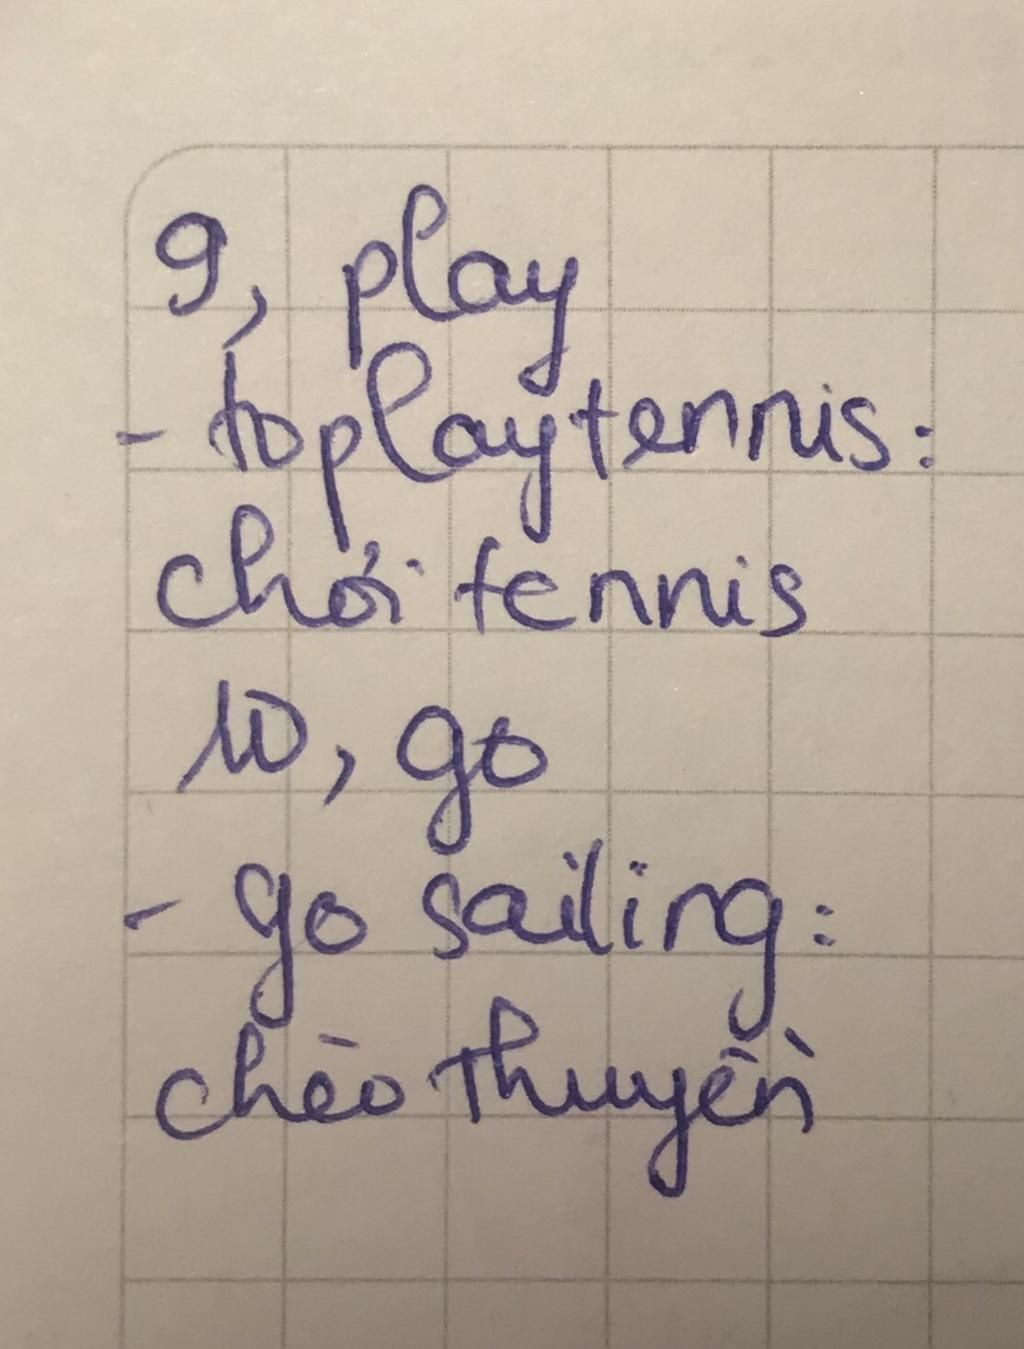 9, play
- to play tennis:
chơi tennis
10, go
- go sailing:
chèo thuyền